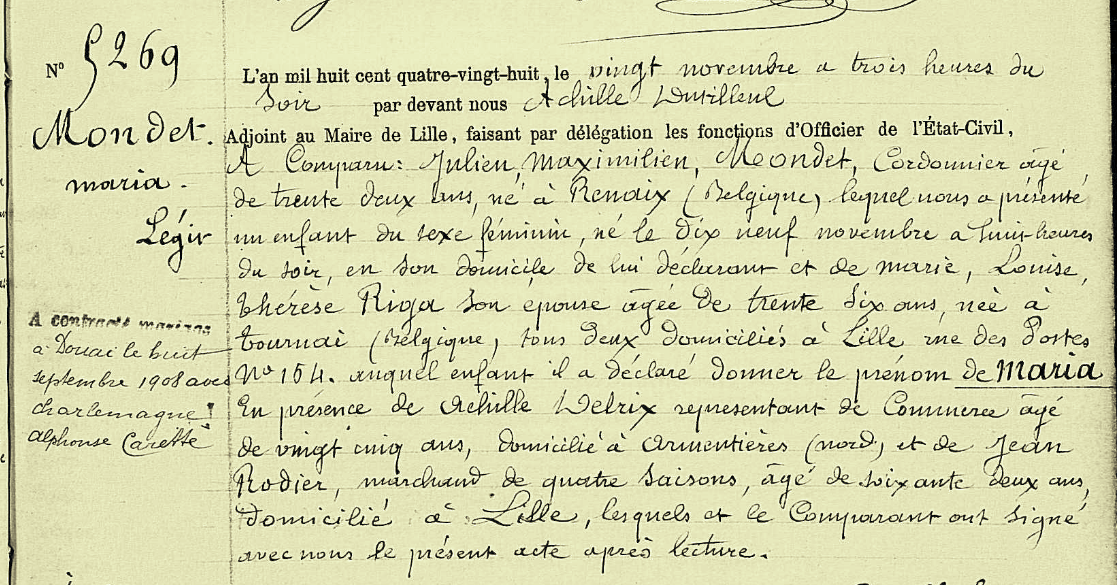 N° 5269
Mondet.
maria.
Légit
A contracté mariage
a Douai le huit
septembre 1908 avec
Charlemagne
alphonse Carette
L'an mil huit cent quatre-vingt-huit, le vingt novembre a trois heures du
soir par devant nous Achille Dutilleul
Adjoint au Maire de Lille, faisant par délégation les fonctions d'Officier de l'État-Civil,
A Comparu: Julien, Maximilien, Mondet, Cordonnier âgé
de trente deux ans, né à Renaix (Belgique) lequel nous a présenté
un enfant du sexe féminin, né le dix neuf novembre a huit heures
du soir, en son domicile de lui déclarant et de marie, Louise,
thérèse Riga son épouse âgée de trente six ans, née à
tournai (Belgique, tous deux domiciliés à Lille rue des Postes
N° 154. auquel enfant il a déclaré donner le prénom de Maria
En présence de Achille Delrix representant de Commerce âgé
de vingt cinq ans, domicilié à armentières (nord) et de Jean
Rodier, marchand de quatre saisons, âgé de soixante deux ans,
domicilié à Lille, lesquels et le Comparant ont signé
avec nous le présent acte après lecture.